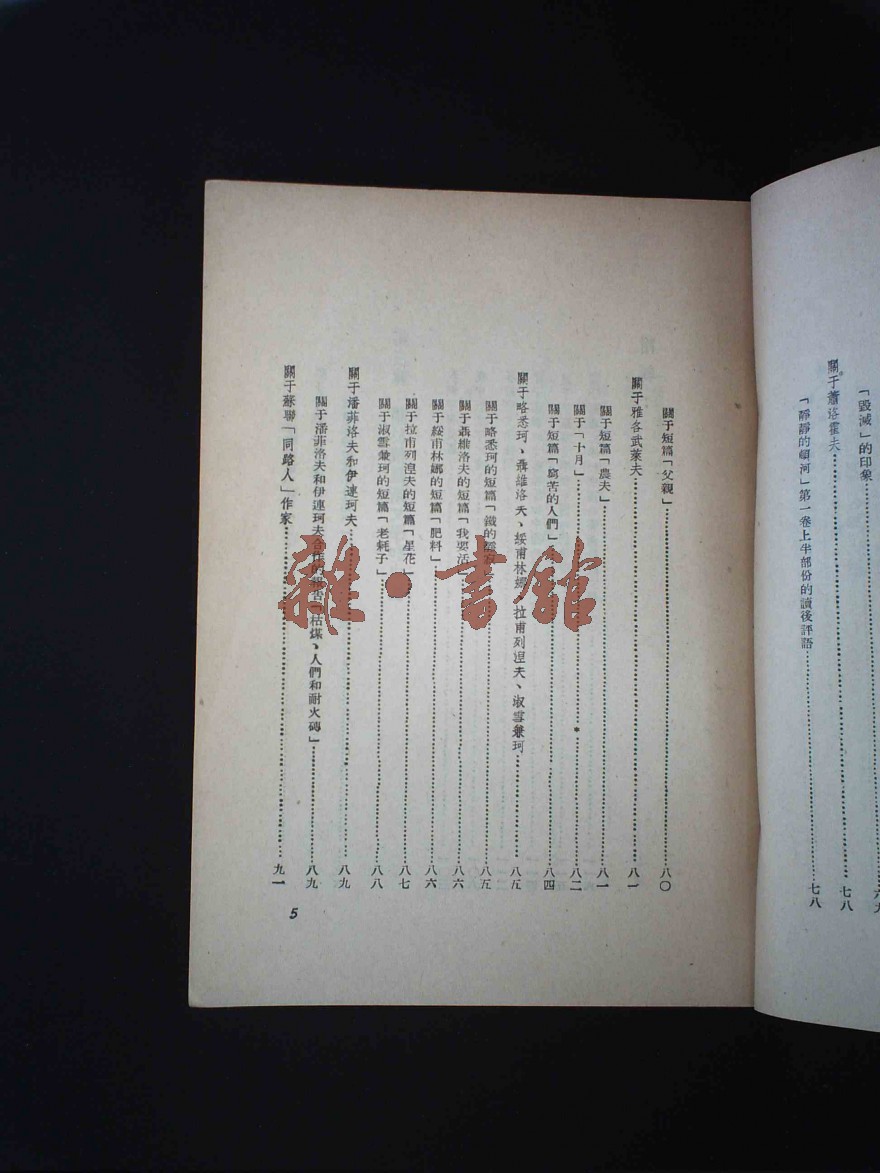 「毀滅」的印象
關于蕭洛霍夫……七八
「靜靜的頓河」第一卷上半部份的讀後評語……七八
關于短篇「父親」……八〇
關于雅各武萊夫……八一
關于短篇「農夫」……八一
關于「十月」……八二
關于短篇「窮苦的人們」……八四
關于略悉珂、聶維洛夫、綏甫林娜、拉甫列涅夫、淑雪兼珂……八五
關于略悉珂的短篇「鐵的……八五
關于聶維洛夫的短篇「我要活」……八六
關于綏甫林娜的短篇「肥料」……八六
關于拉甫列涅夫的短篇「星花」……八七
關于淑雪兼珂的短篇「老耗子」……八八
關于潘菲洛夫和伊連珂夫……八九
關于潘菲洛夫和伊連珂夫合作的報告「枯煤、人們和耐火磚」……八九
關于蘇聯「同路人」作家……九一
5
雜·書館